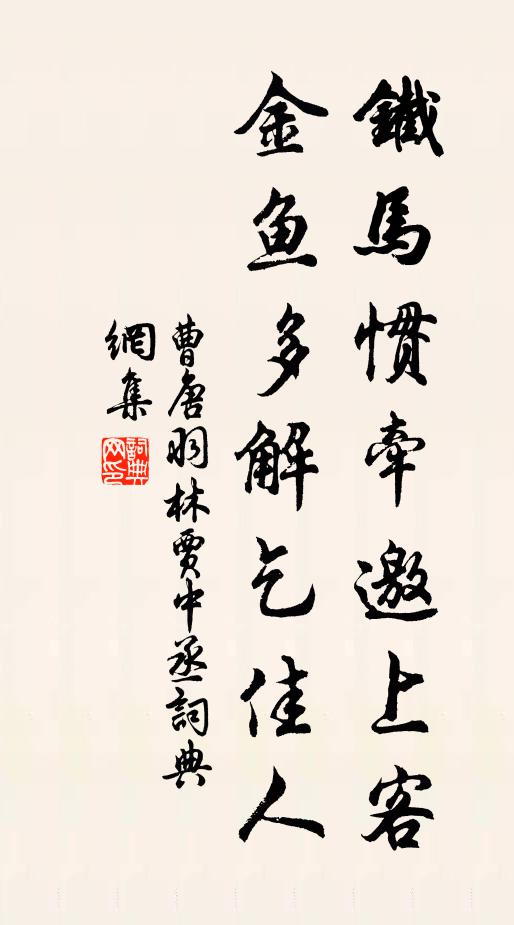 鐵馬慣牽邀上客
金鱼多解乞佳人
曹唐羽林賈中丞詞典
網集
詞典
网印